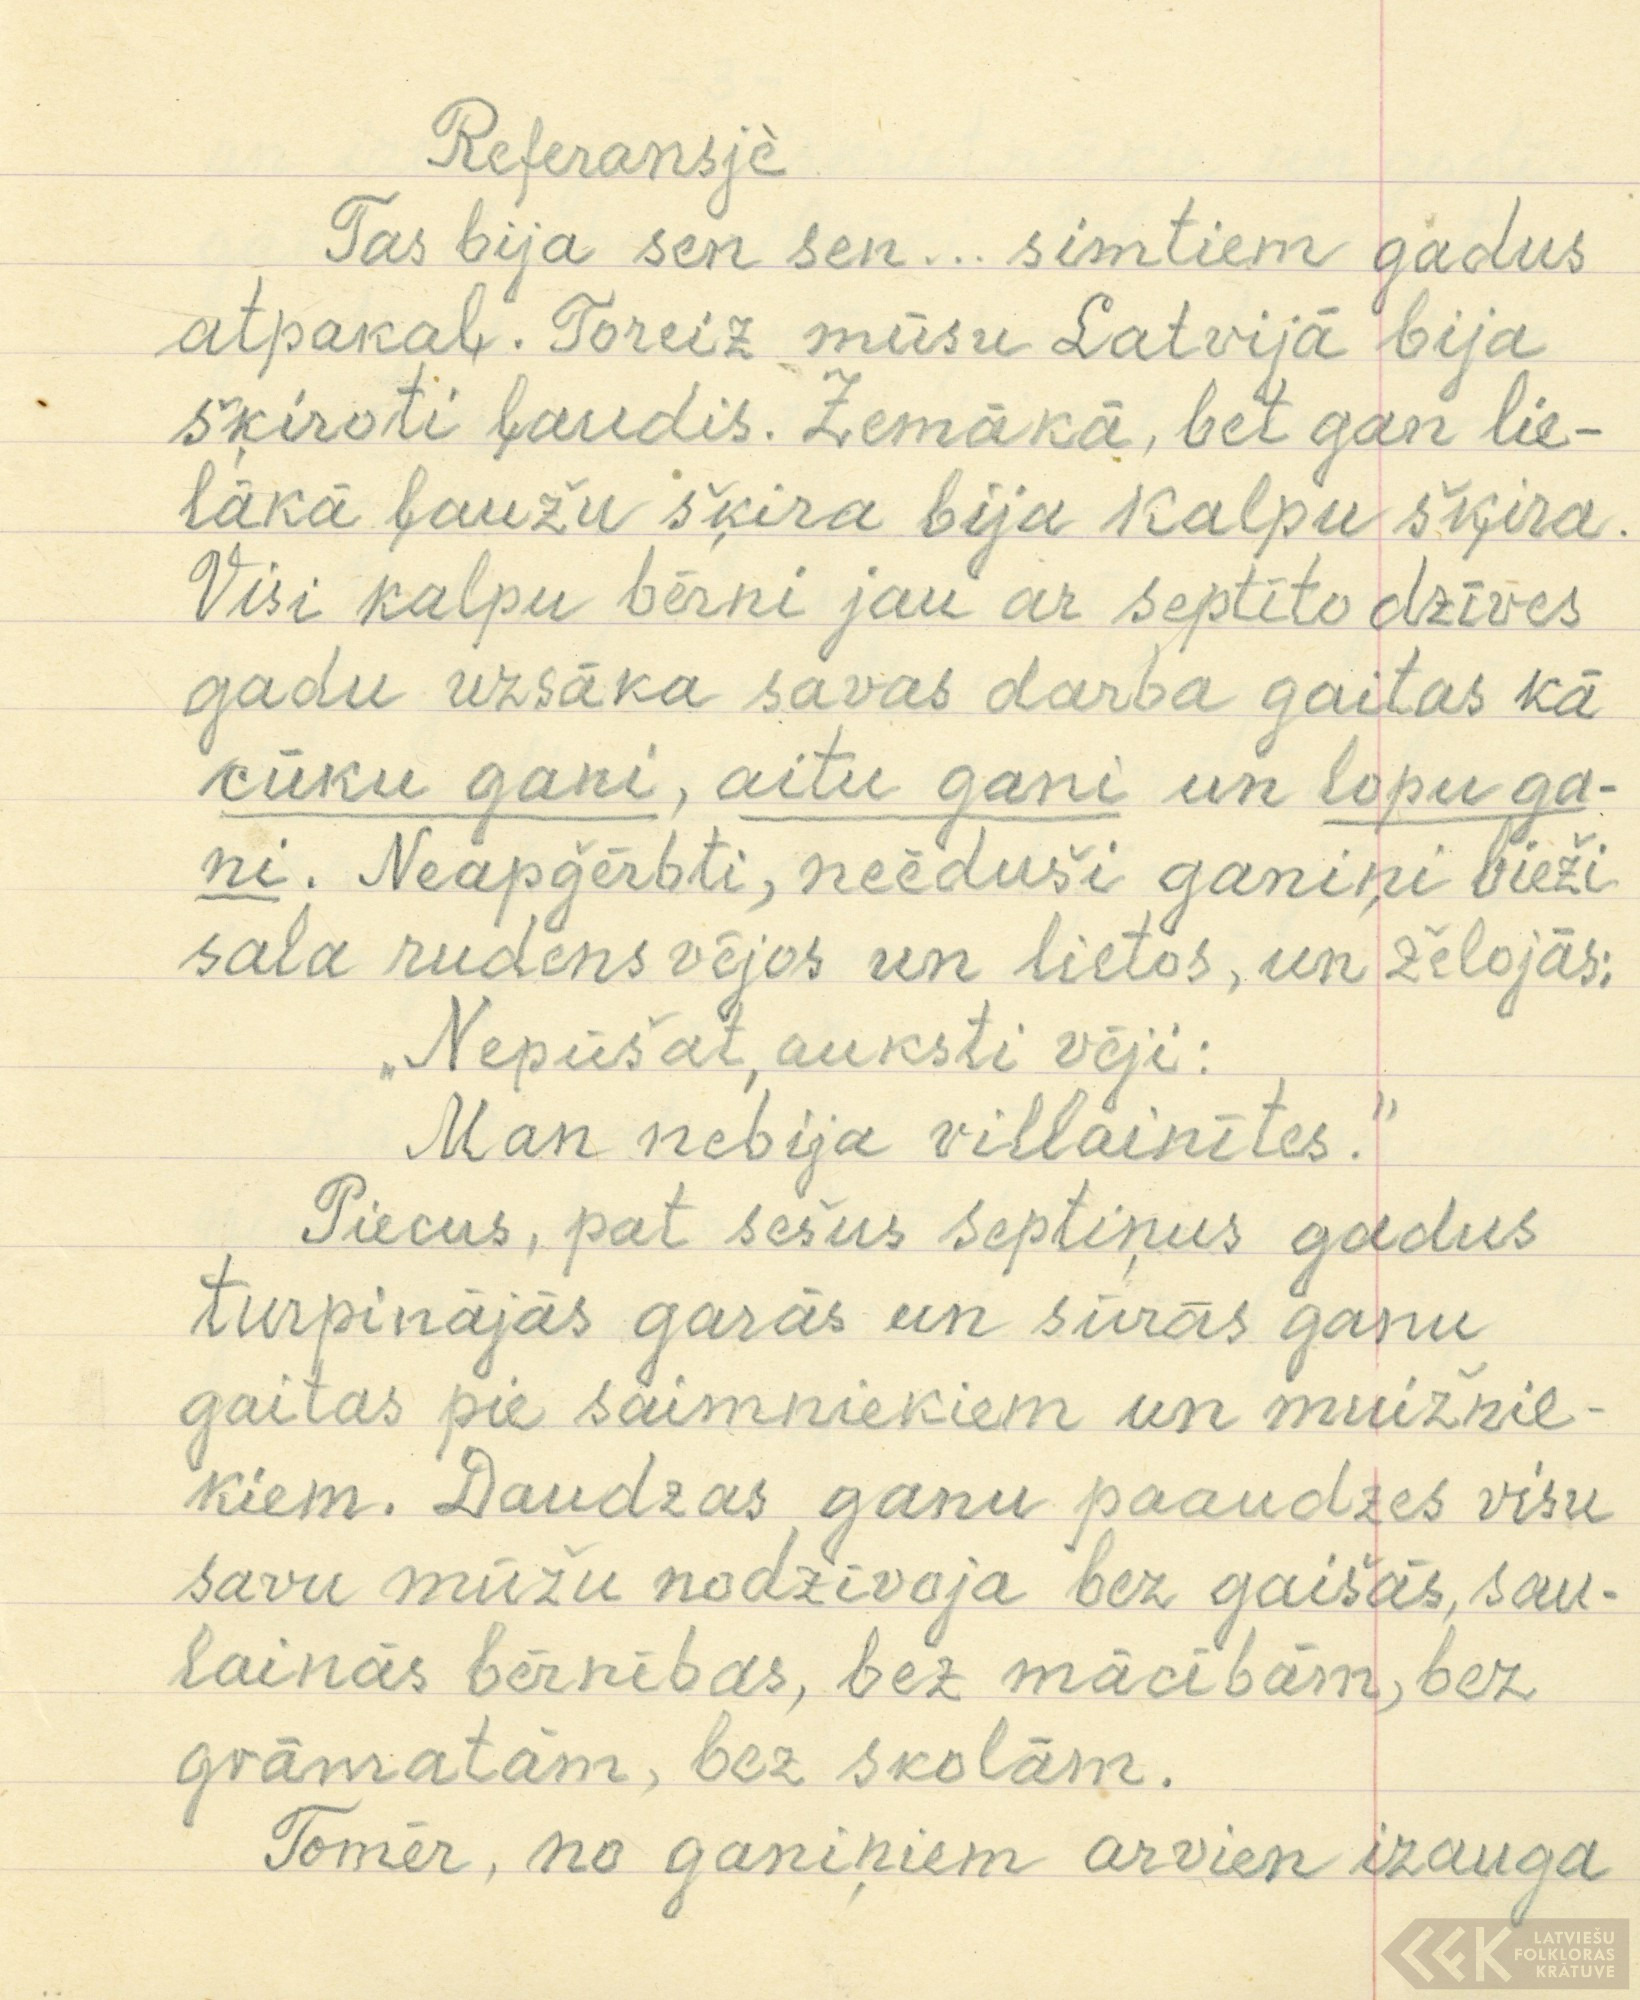 Referansjē
Tas bija sen sen... simtiem gadus
atpakaļ. Toreiz mūsu Latvijā bija
šķiroti ļaudis. Zemākā, bet gan lie-
lākā ļaužu šķira bija kalpu šķira.
Visi kalpu bērni jau ar septīto dzīves
gadu uzsāka savas darba gaitas kā
cūku gani, aitu gani un lopu ga-
ni. Neapģērbti, neēduši ganiņi bieži
sala rudens vējos un lietos, un žēlojās:
„Nepūšat, auksti vēji:
Man nebija villainītes.”
Piecus, pat sešus septiņus gadus
turpinājās garās un sūrās ganu
gaitas pie saimniekiem un muižnie-
kiem. Daudzas ganu paaudzes visu
savu mūžu nodzīvoja bez gaišās, sau-
lainās bērnības, bez mācībām, bez
grāmatām, bez skolām.
Tomēr, no ganiņiem arvien izauga
LATVIEŠU
FOLKLORAS
KRĀTUVE